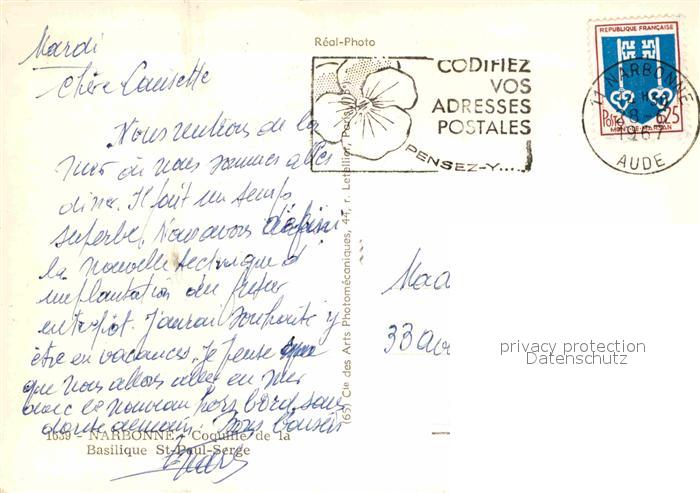 Mardi
Chère Cousette
Nous rentrons de la
mer où nous sommes allés
dîner. Il fait un temps
superbe. Nous avons
la nouvelle technique d'
implantation du futur
entrepôt. J'aurai souhaité y
être en vacances. Je pense que
que nous allons aller en mer
avec le nouveau hors bord sans
doute demain. Bons baisers
1639 - NARBONNE - Coquille de la
Basilique St-Paul-Serge
Réal-Photo
(65) Cie des Arts Photomécaniques, 44, r. Letellier, Paris
CODIFIEZ
VOS
ADRESSES
POSTALES
PENSEZ-Y.....
REPUBLIQUE FRANÇAISE
0,25
POSTES
MONT-DE-MARSAN
11 NARBONNE
1967
AUDE
Mad
33 av
privacy protection
Datenschutz